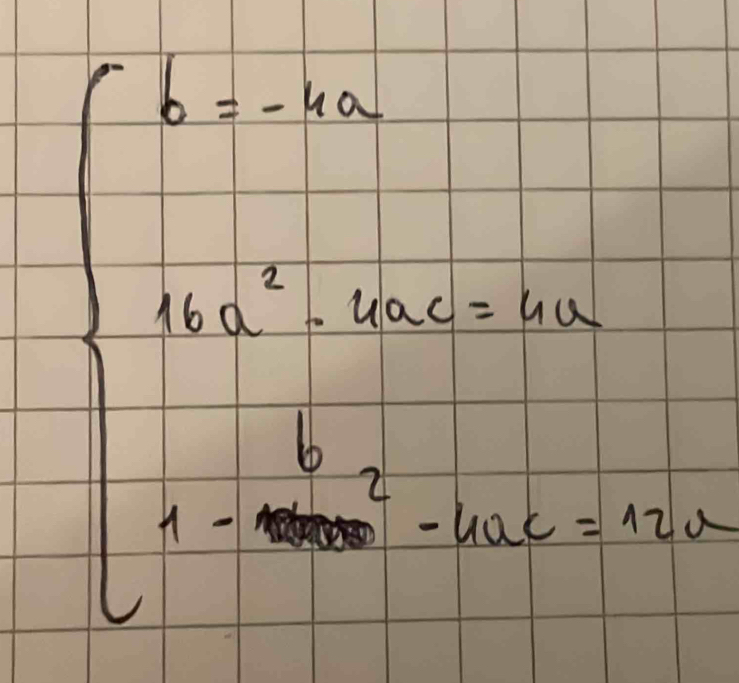 b = -4a
16a² - 4ac = 4a
1 - b² - 4ac = 12a